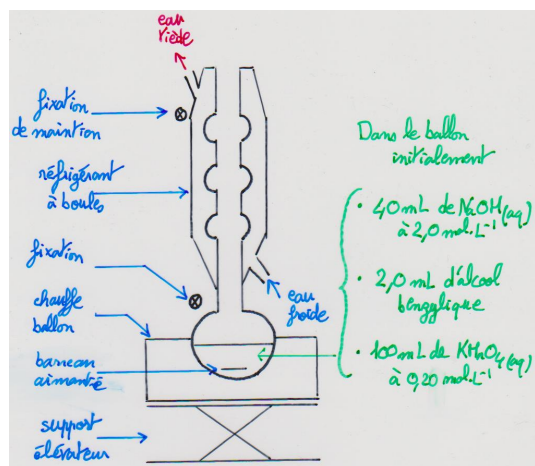 eau
tiède
fixation
de maintion
réfrigérant
à boules
fixation
chauffe
ballon
barreau
aimanté
support
élévateur
eau
froide
Dans le ballon
initialement
• 40 mL de NaOH (aq)
à 2,0 mol.L⁻¹
• 2,0 mL d'alcool
benzylique
• 100 mL de KMnO₄ (aq)
à 0,20 mol.L⁻¹